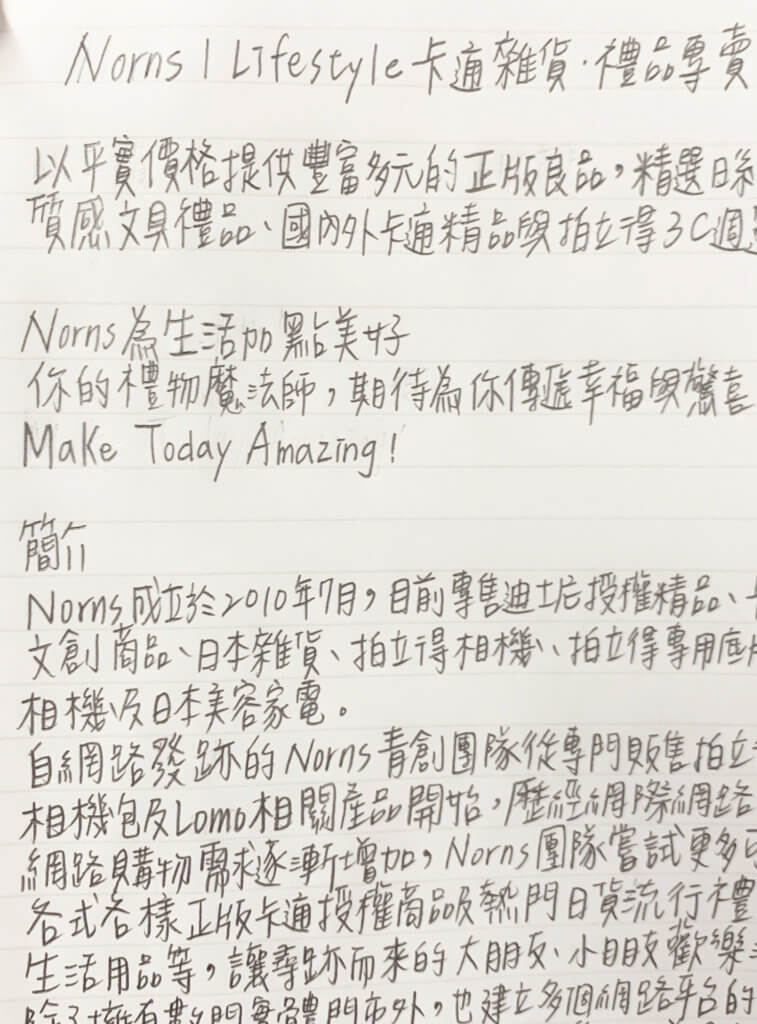 Norns | Lifestyle 卡通雜貨·禮品專賣
以平實價格提供豐富多元的正版良品，精選日系
質感文具禮品、國內外卡通精品與拍立得3C週
Norns為生活加點美好
你的禮物魔法師，期待為你傳遞幸福與驚喜
Make Today Amazing!
簡介
Norns成立於2010年7月，目前專售迪士尼授權精品、
文創商品、日本雜貨、拍立得相機、拍立得專用底片
相機及日本美容家電。
自網路發跡的Norns青創團隊從專門販售拍立
相機包及Lomo相關產品開始，歷經網際網路
網路購物需求逐漸增加，Norns團隊嘗試更多
各式各樣正版卡通授權商品及熱門日貨流行禮
生活用品等，讓尋跡而來的大朋友、小朋友歡樂
除了擁有數間實體門市外，也建立多個網路平台的